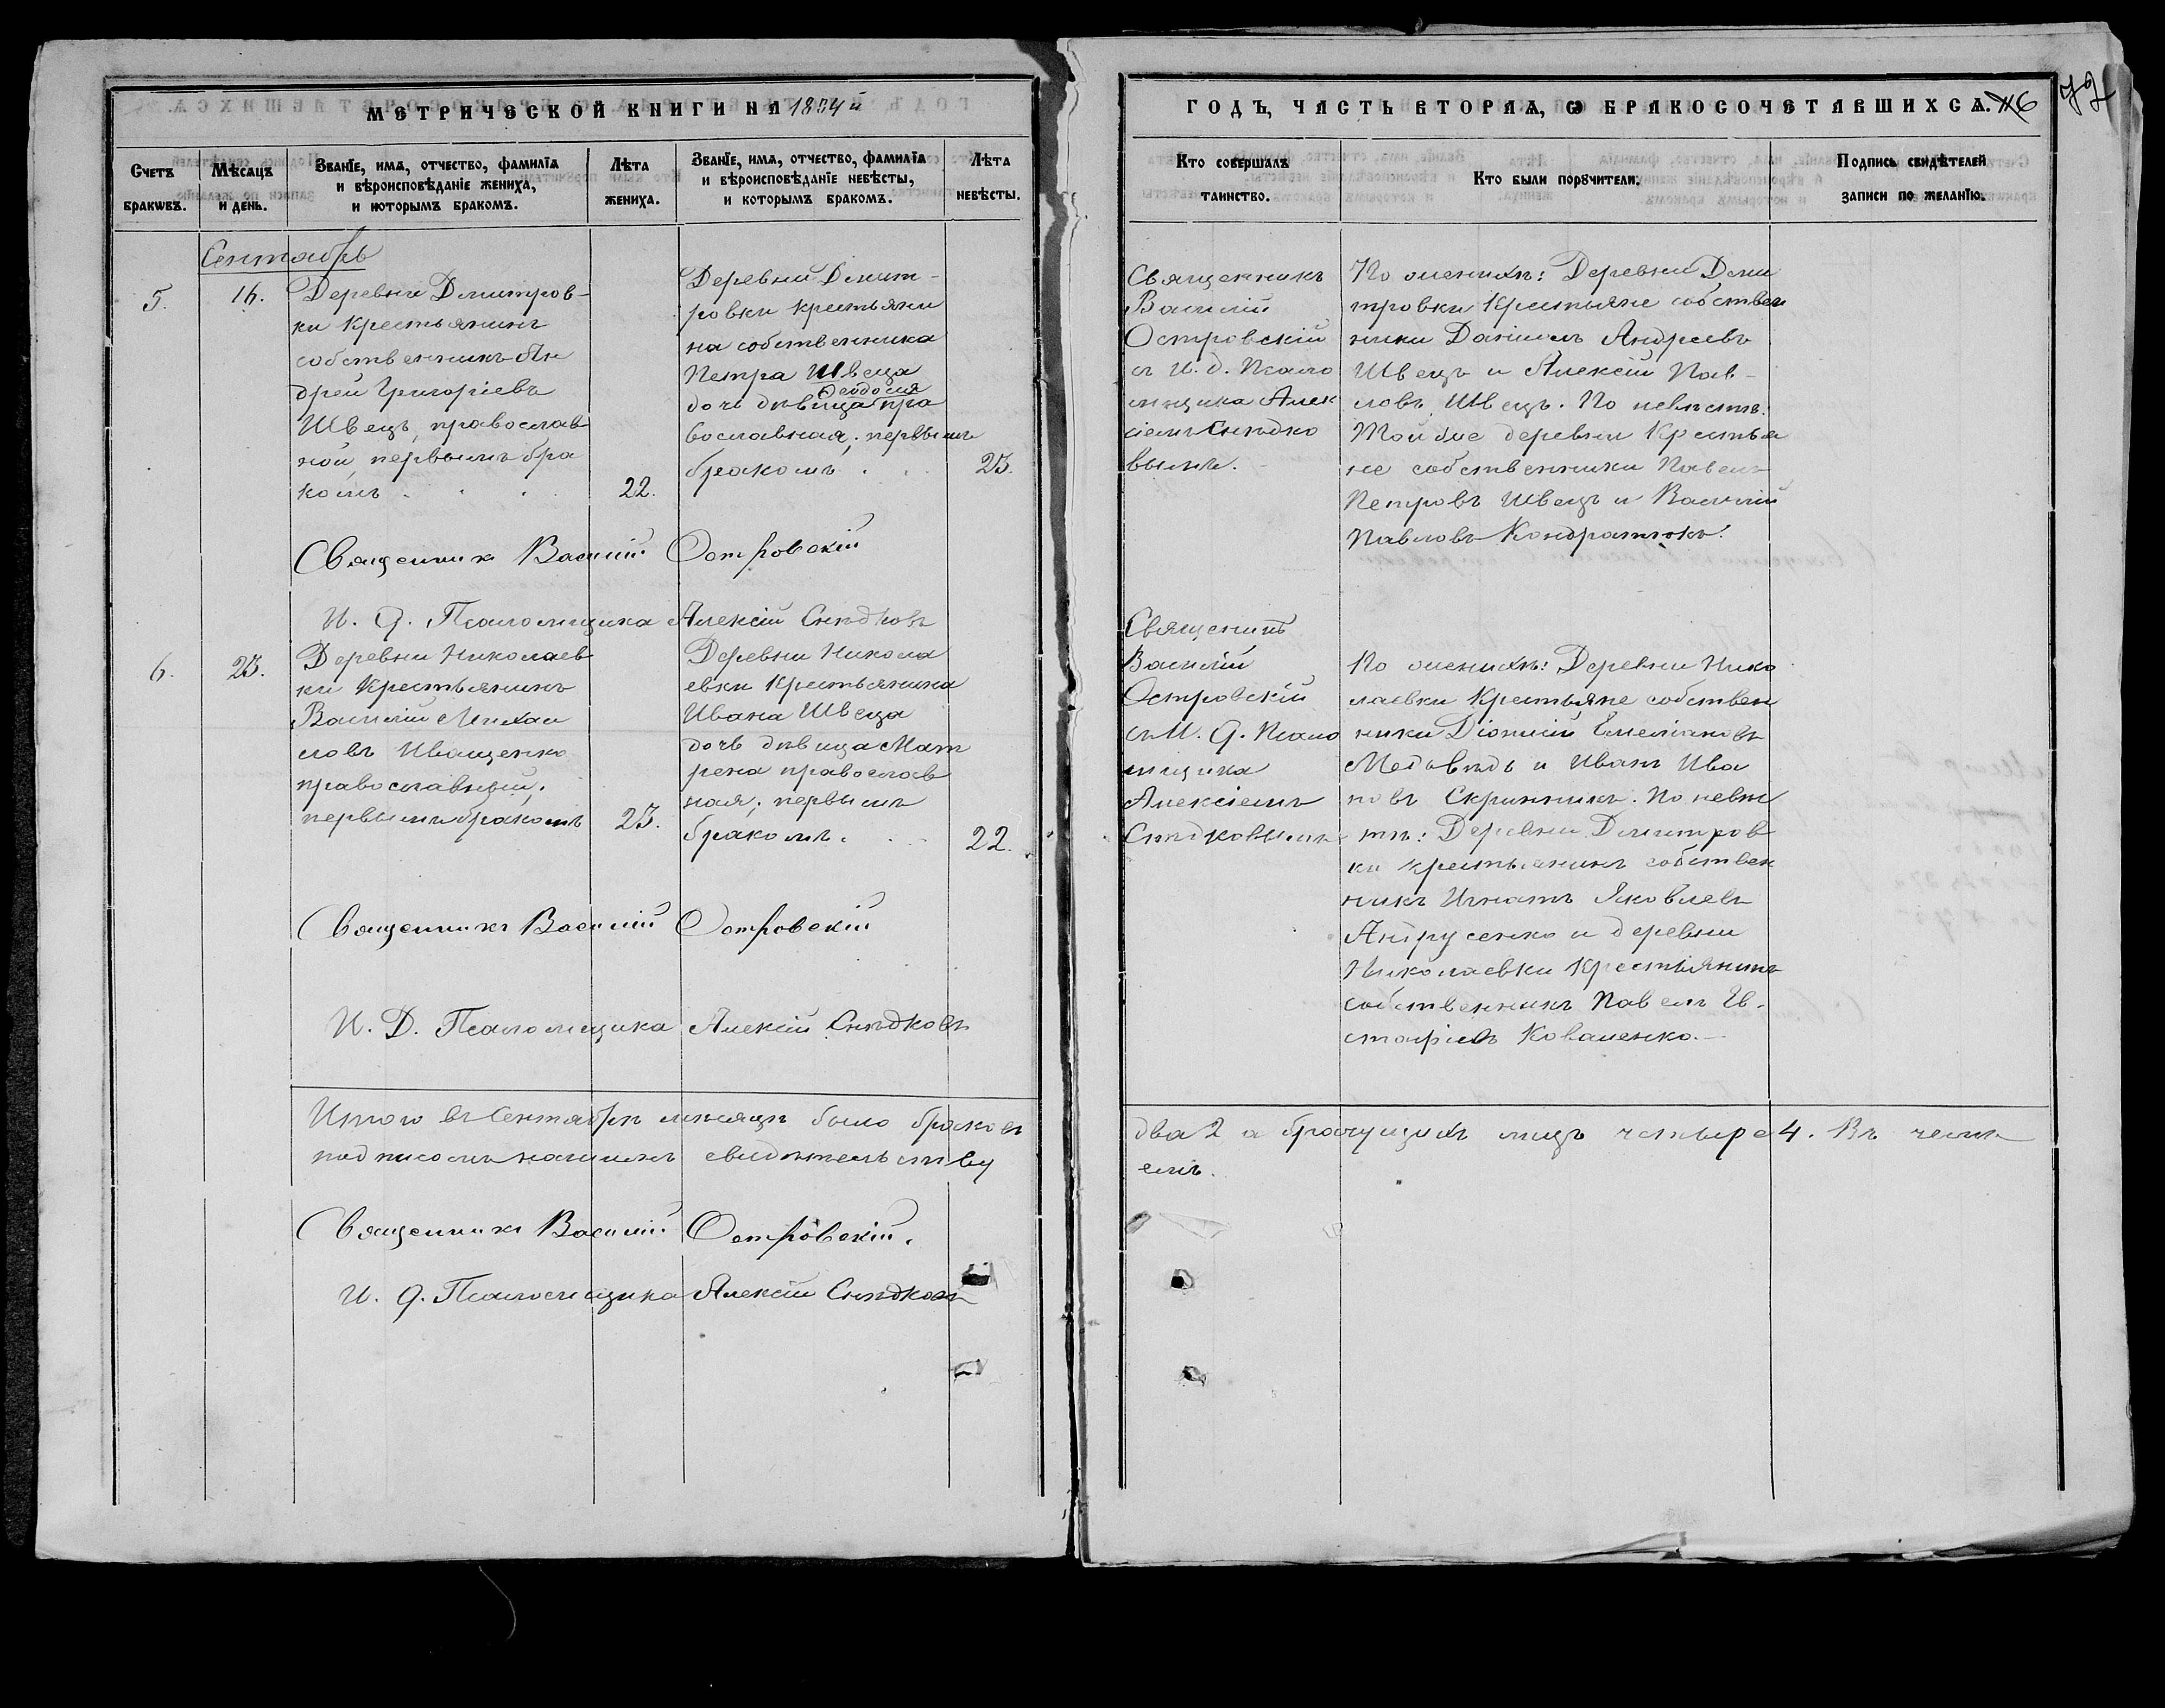 МЕТРИЧЕСКОЙ КНИГИ НА 1894й
ГОДЪ, ЧАСТЬ ВТОРАЯ, Ѡ БРАКОСОЧЕТАВШИХСѦ.
Счетъ браквъ.
Мѣсѧцъ и день.
Званїе, имѧ, отчество, фамилїѧ
и вѣроисповѣданїе жениха,
и которымъ бракомъ.
Лѣта
жениха.
Званїе, имѧ, отчество, фамилїѧ
и вѣроисповѣданїе невѣсты,
и которымъ бракомъ.
Лѣта
невѣсты.
Кто совершалъ
таинство.
Кто были порꙋчители.
Подпись свидѣтелей
записи по желанїю.
Сентябрь
5.
16.
Деревни Дмитров-
ки крестьянинъ
собственникъ Ан
дрей Григоріевъ
Швецъ, православ
ной, первымъ бра
комъ . . .
22.
Деревни Дмит-
ровки крестьяни
на собственника
Петра Швеца
Ѳеодосия
дочь дѣвица пра
вославная; первымъ
бракомъ . .
23.
Священникъ
Василій
Островскій
съ И. д. Псало
мщика Алек
сіемъ Снѣдко
вымъ.
По женихѣ: Деревни Дми
тровки крестьяне собствен
ники Даніилъ Андреевъ
Швецъ и Алексій Пав-
ловъ Швецъ. По невѣстѣ:
Той же деревни крестья
не собственники Павелъ
Петровъ Швецъ и Василій
Павловъ Кондратюкъ.
Священникъ Василій Островскій
И. д. Псаломщика Алексій Снѣдковъ
6.
23.
Деревни Николаев
ки крестьянинъ
Василій Михаи
ловъ Иващенко
православный;
первымъ бракомъ
23.
Деревни Никола
евки крестьянина
Ивана Швеца
дочь дѣвица Мат
рена православ
ная; первымъ
бракомъ. . .
22.
Священникъ
Василій
Островскій
съ И. д. Псало
мщика
Алексіемъ
Снѣдковымъ
По женихѣ: Деревни Нико
лаевки крестьяне собствен
ники Діонисій Емеліановъ
Медвѣдь и Иванъ Ива
новъ Скринникъ. По невѣс
тѣ: Деревни Дмитров
ки крестьянинъ собствен
никъ Игнатъ Яковлевъ
Андрусенко и деревни
Николаевки крестьянинъ
собственникъ Павелъ Ев-
стафіевъ Коваленко.—
Священникъ Василій Островскій
И. Д. Псаломщика Алексій Снѣдковъ
Итого въ Сентябрѣ мѣсяцѣ было браковъ два 2 а брачущихъ лицъ четыре 4. Въ чемъ
подписомъ нашимъ свидѣтельству
емъ.
Священникъ Василій Островскій.
И. д. Псаломщика Алексій Снѣдковъ